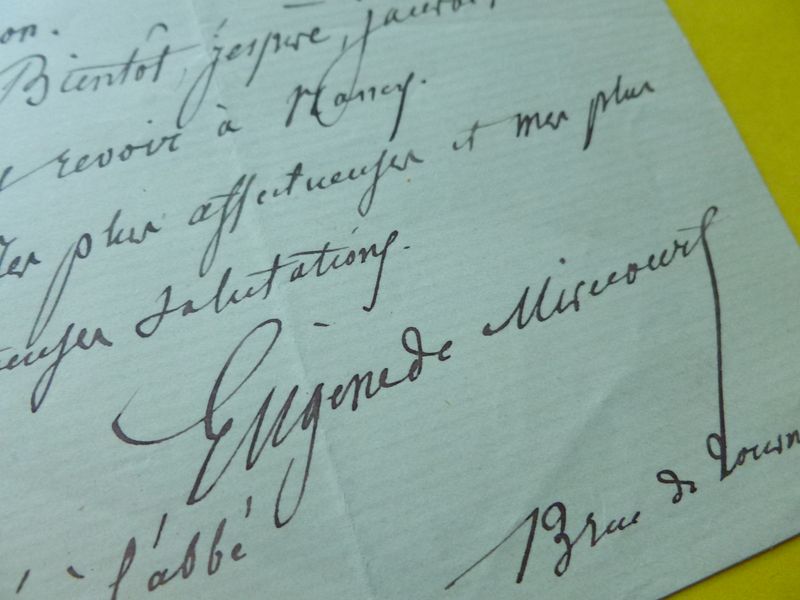 on.
Bientôt, j'espère, j'aurai
revoir à Nancy.
plus affectueuses et mes plus
euses salutations.
Eugène de Mirecourt
l'abbé
13 rue de Tourn